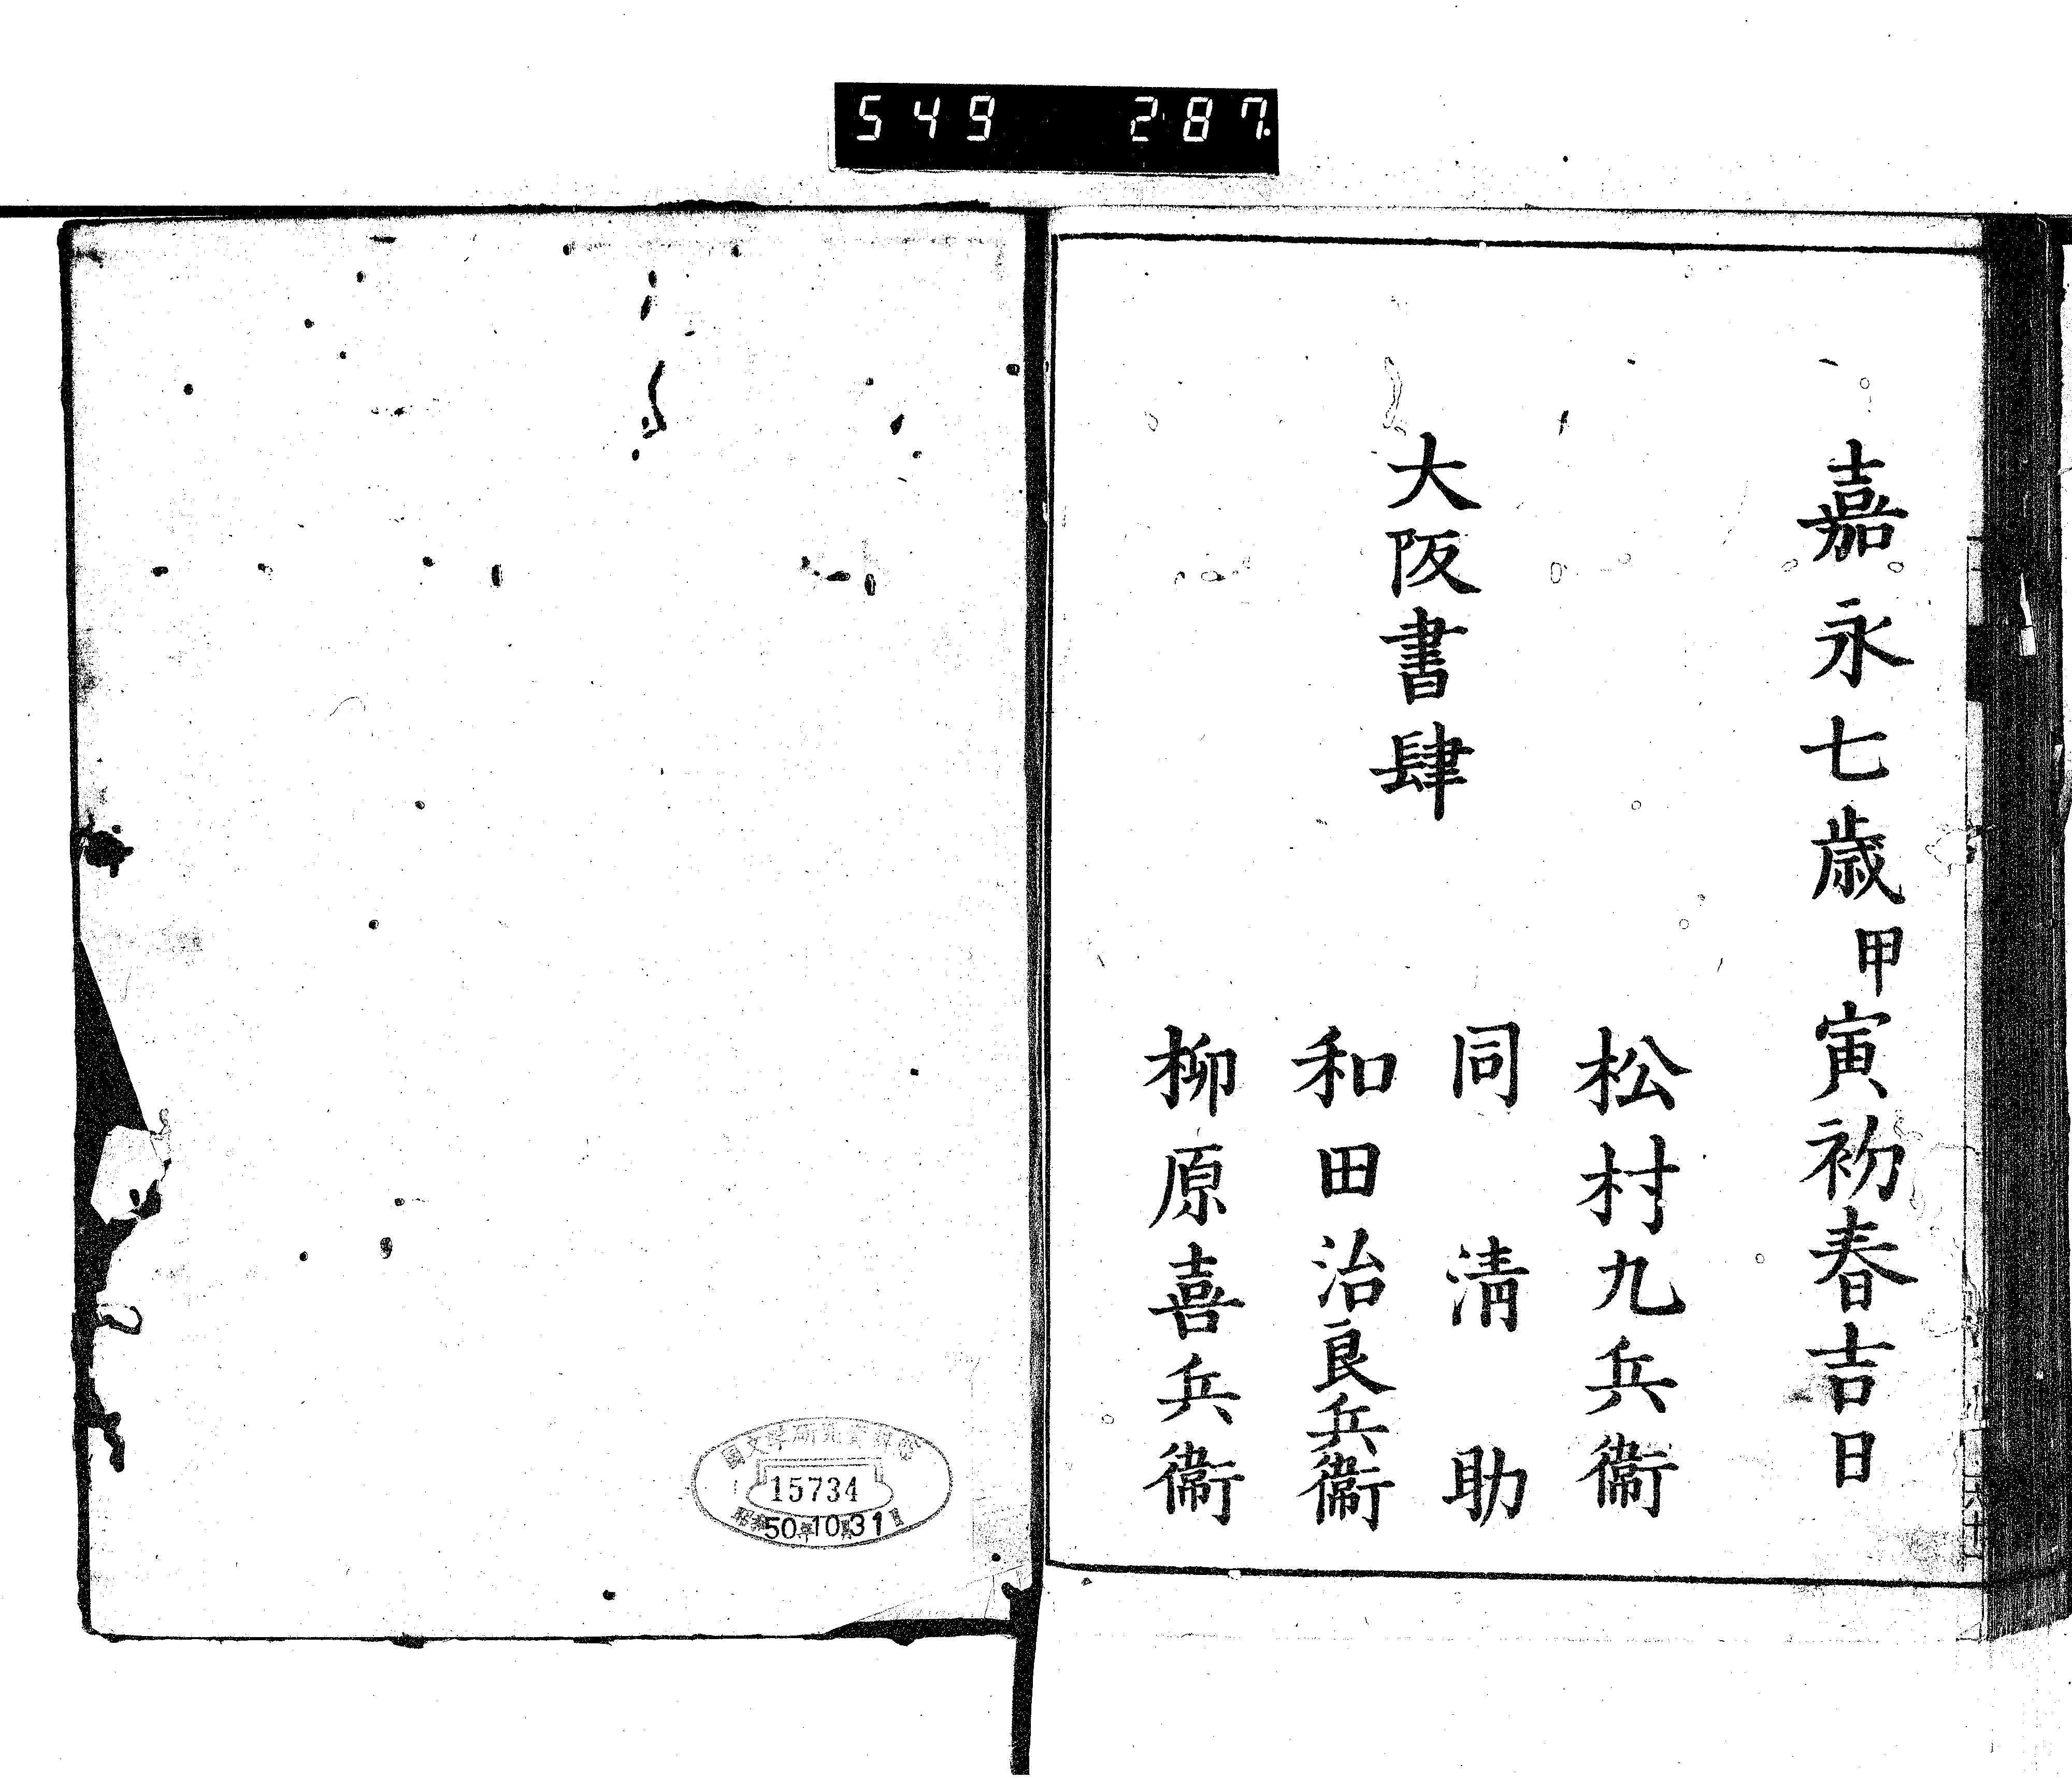 549 287
嘉永七歳甲寅初春吉日
大阪書肆
松村九兵衞
同清助
和田治良兵衞
柳原喜兵衞
國文学研究資料館
15734
昭和50年10月31日
六十